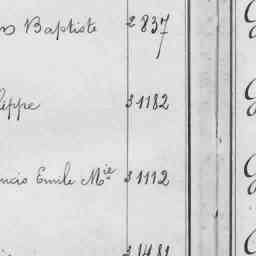 Baptiste 2837
eppe 31182
ncis Emile Mie 31112
31481